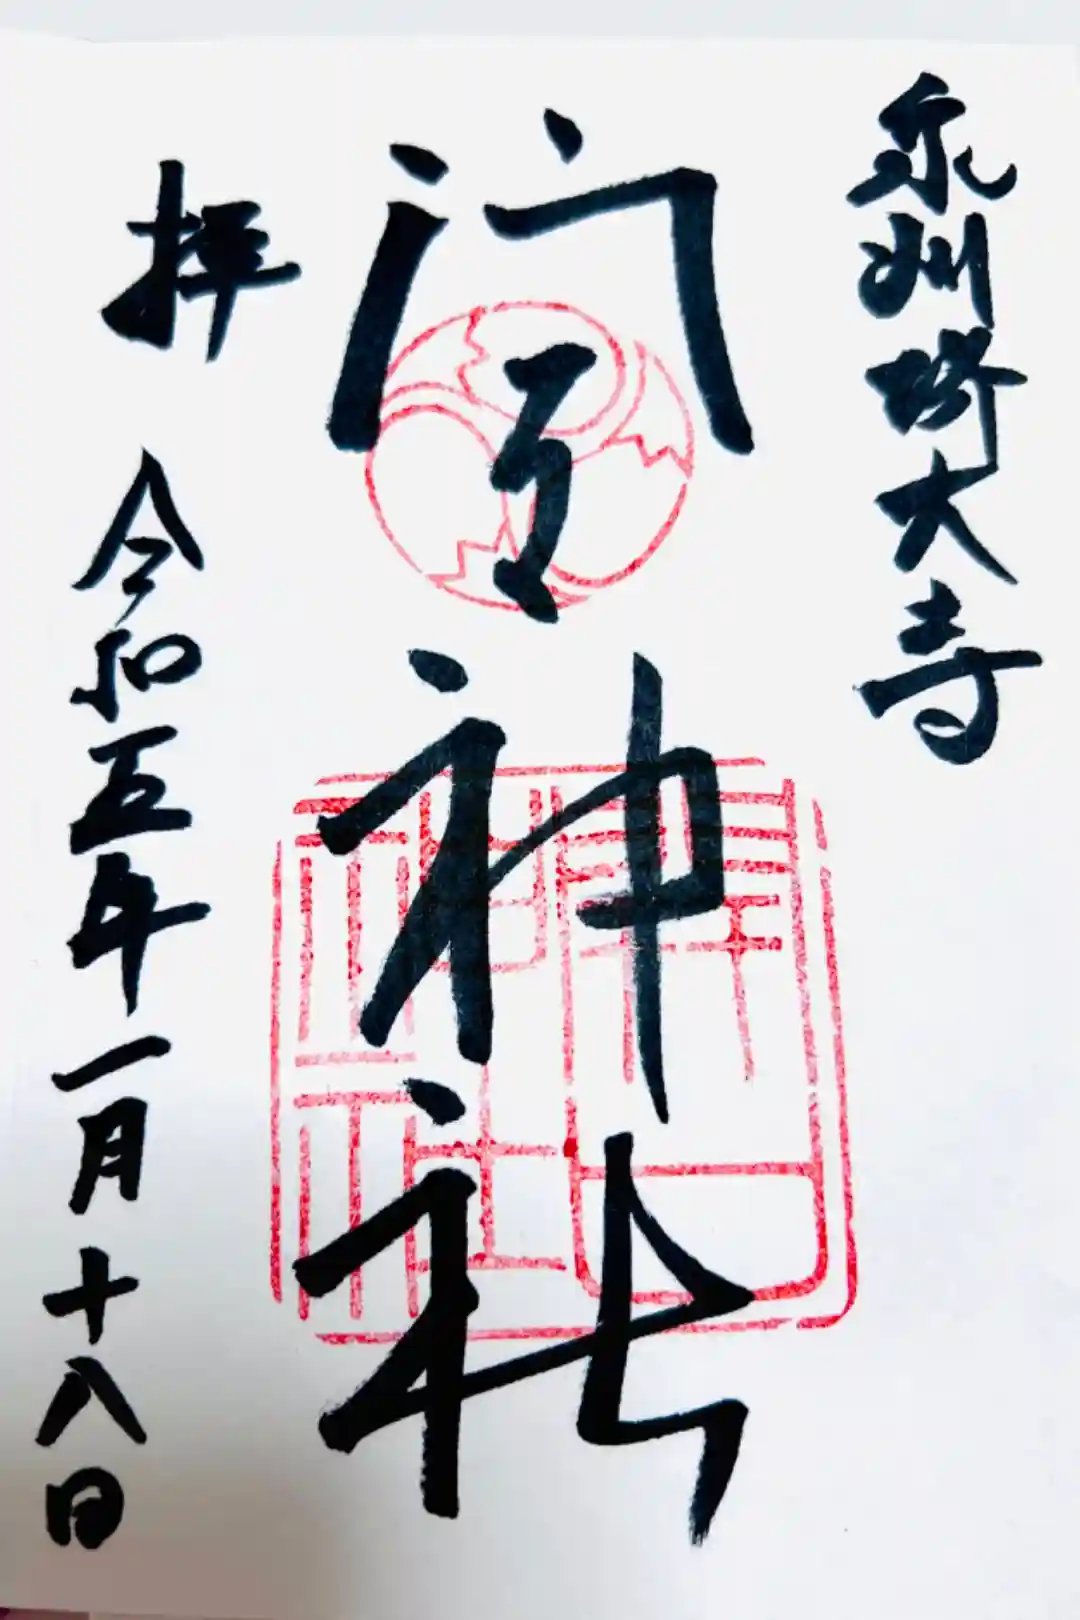 泉州堺大寺
開口神社
開口神社
拝
令和五年一月十八日